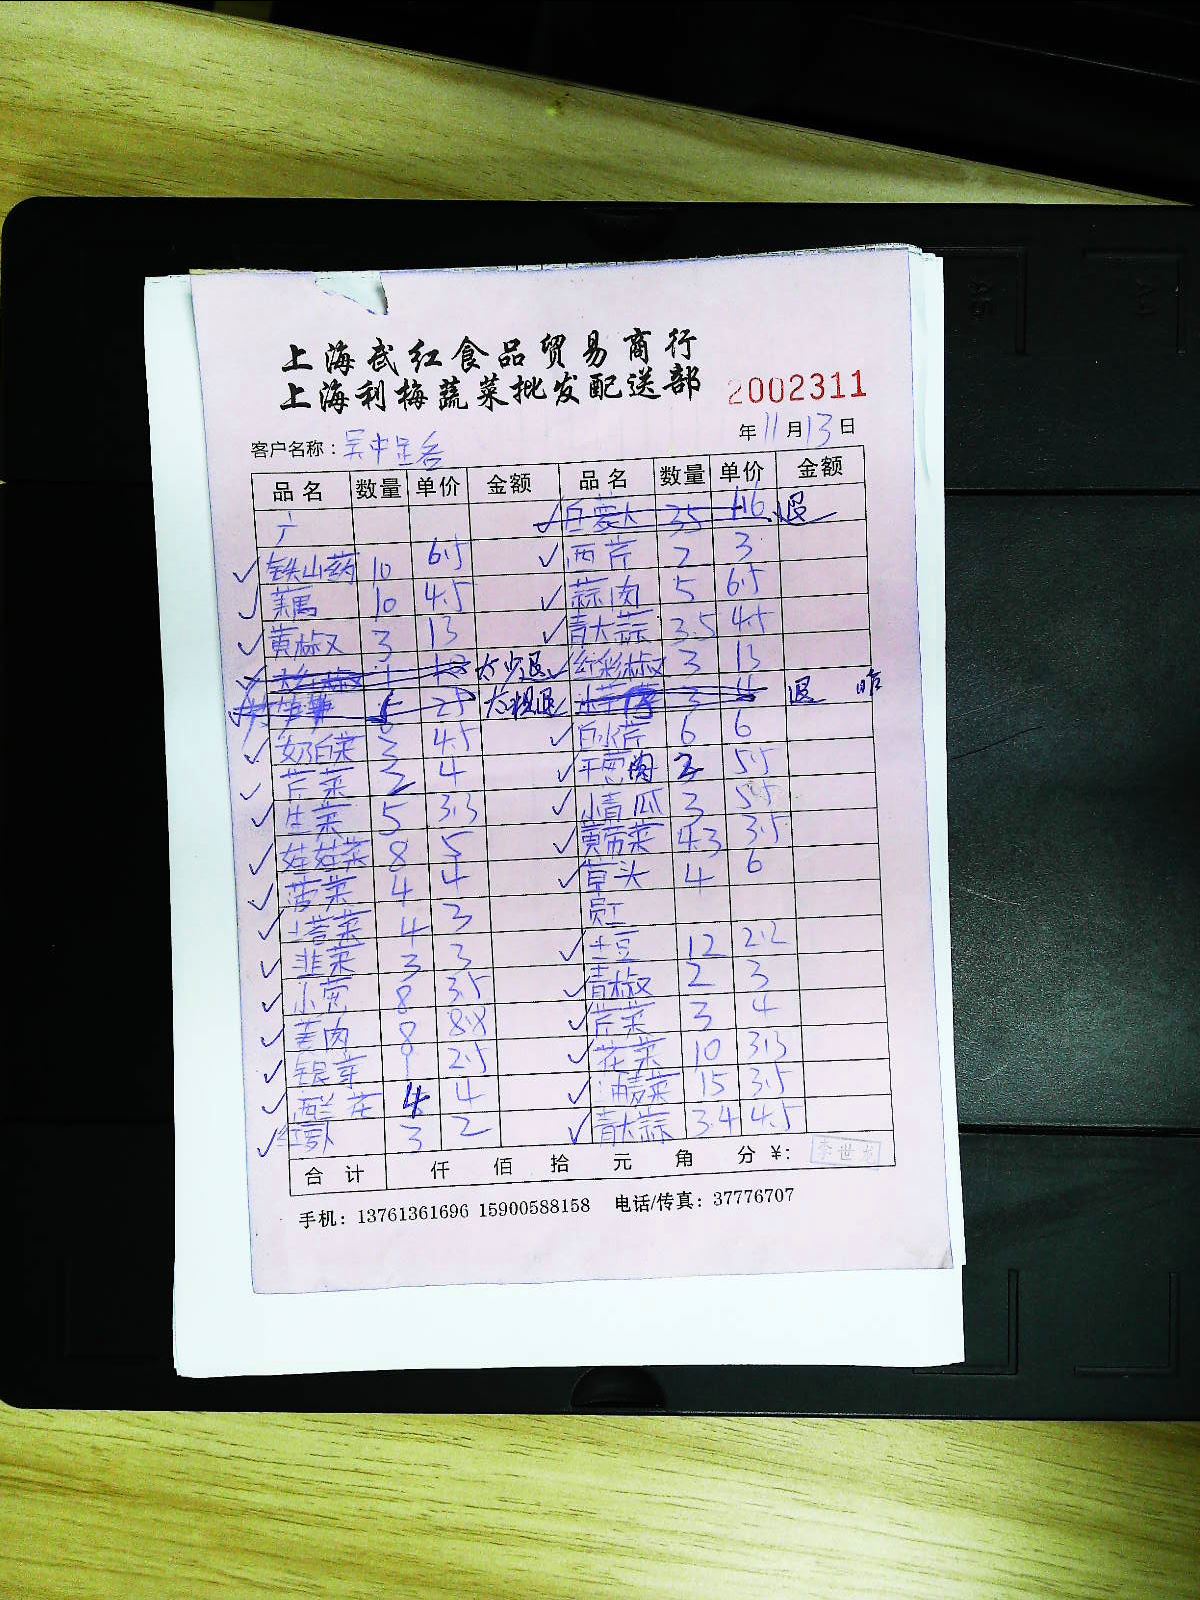 上海武红食品贸易商行
上海利梅蔬菜批发配送部 2002311
客户名称: 年 11 月 13 日
品名 数量 单价 金额 品名 数量 单价 金额
白萝卜 35 退
铁山药 10 6.5 西芹 2 3
藕 10 4.5 蒜肉 5 6.5
黄椒 3 13 青大蒜 3.5 4.5
太少退 红彩椒 3 13
25 太粗退 3 4 退
奶白菜 3 4.5 白水芹 6 6
芹菜 2 4 5.5
生菜 5 3.3 小青瓜 3 5.5
娃娃菜 8 5 3.5
菠菜 4 4 草头 4 6
塔菜 4 3
韭菜 3 3 土豆 12 2.2
小葱 8 3.5 青椒 2 3
姜肉 8 8.8 芹菜 3 4
银芽 2.5 花菜 10 3.3
西兰花 4 4 油麦菜 15 3.5
3 2 青大蒜 3.4 4.5
合计 仟 佰 拾 元 角 分 ¥: 李世龙
手机: 13761361696 15900588158 电话/传真: 37776707